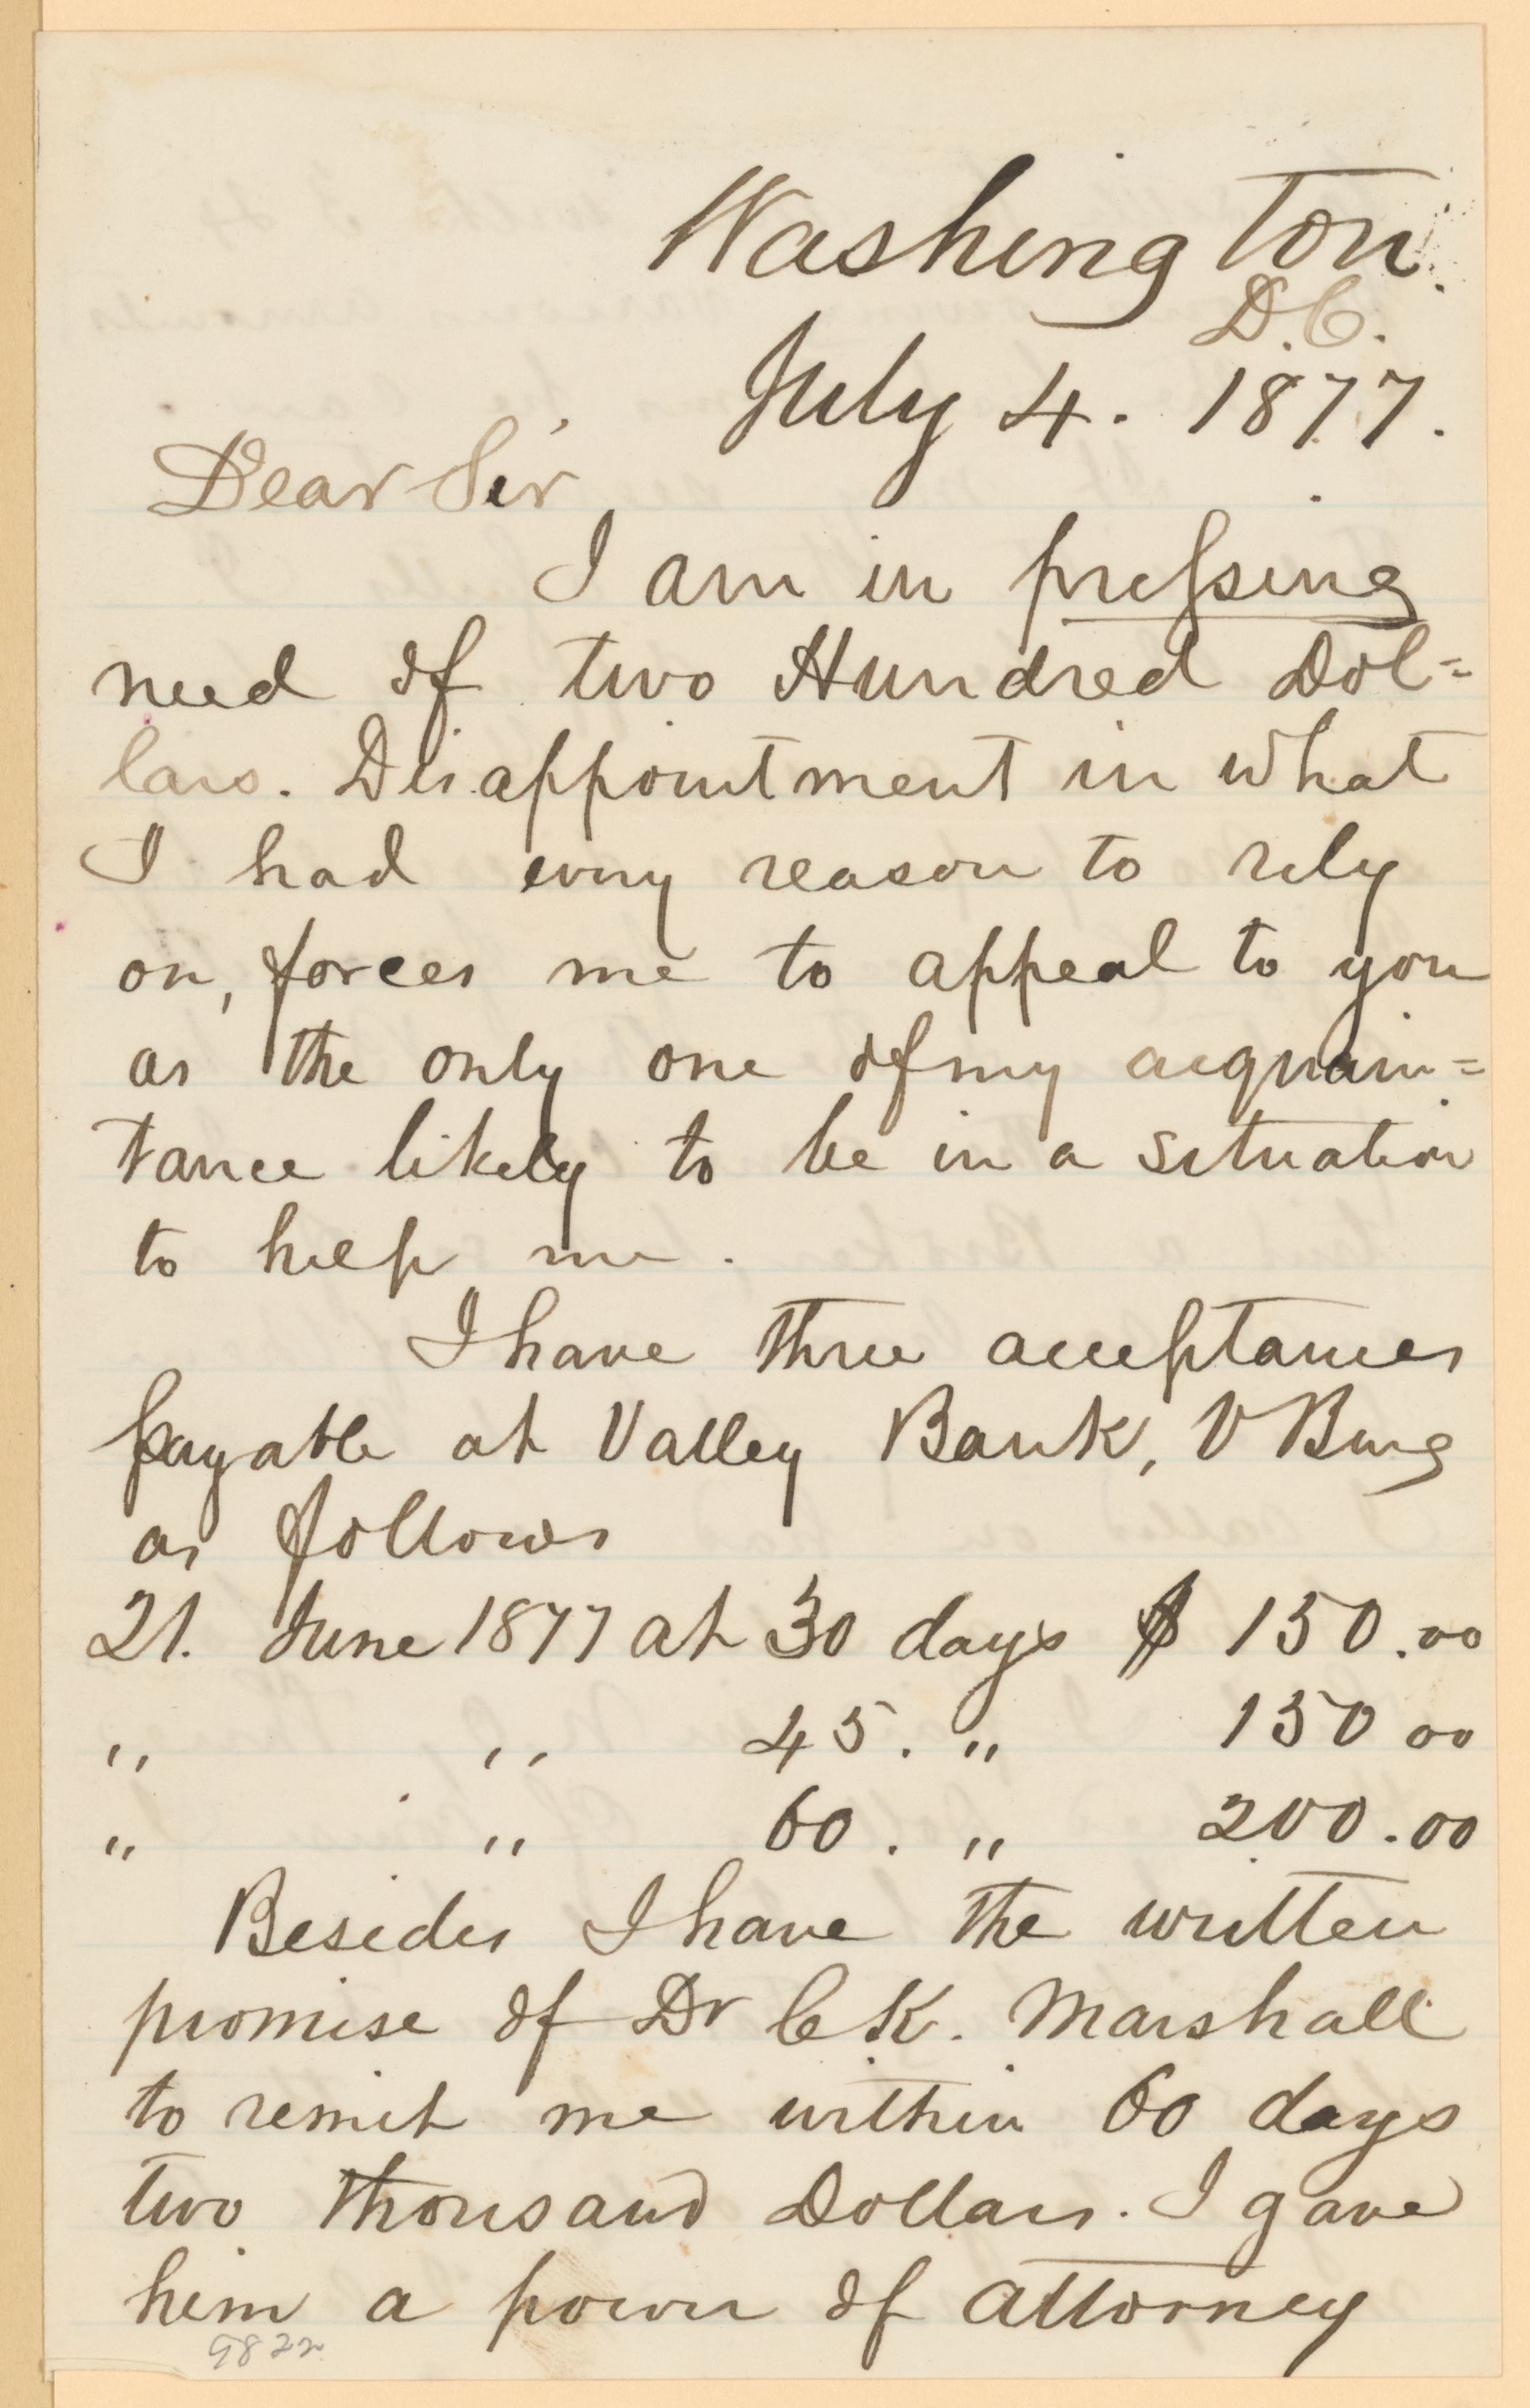 Washington.
D.C.
July 4. 1877.
Dear Sir
I am in pressing
need of two Hundred Dol=
lars. Disappointment in what
I had every reason to rely
on, forces me to appeal to you
as the only one of my acquain=
tance likely to be in a situation
to help me.
I have three acceptances
payable at Valley Bank, V Burg
as follows
21. June 1877 at 30 days $ 150.00
" " 45. " 150 00
" " 60. " 200.00
Besides I have the written
promise of Dr C K. Marshall
to remit me within 60 days
two thousand Dollars. I gave
him a power of attorney
9822